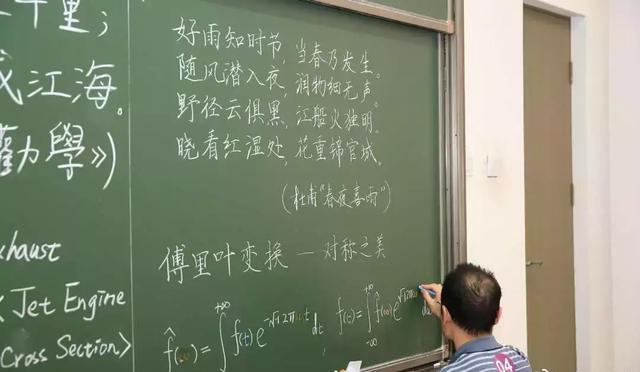 千里；
成江海。
勸學》)
xhaust
Jet Engine
Cross Section>
好雨知时节，当春乃发生。
随风潜入夜，润物细无声。
野径云俱黑，江船火独明。
晓看红湿处，花重锦官城。
(杜甫“春夜喜雨”)
傅里叶变换 — 对称之美
f̂(ω) = ∫ +∞ -∞ f(t) e^{-√-1 2πωt} dt, f(t) = ∫ +∞ -∞ f̂(ω) e
04